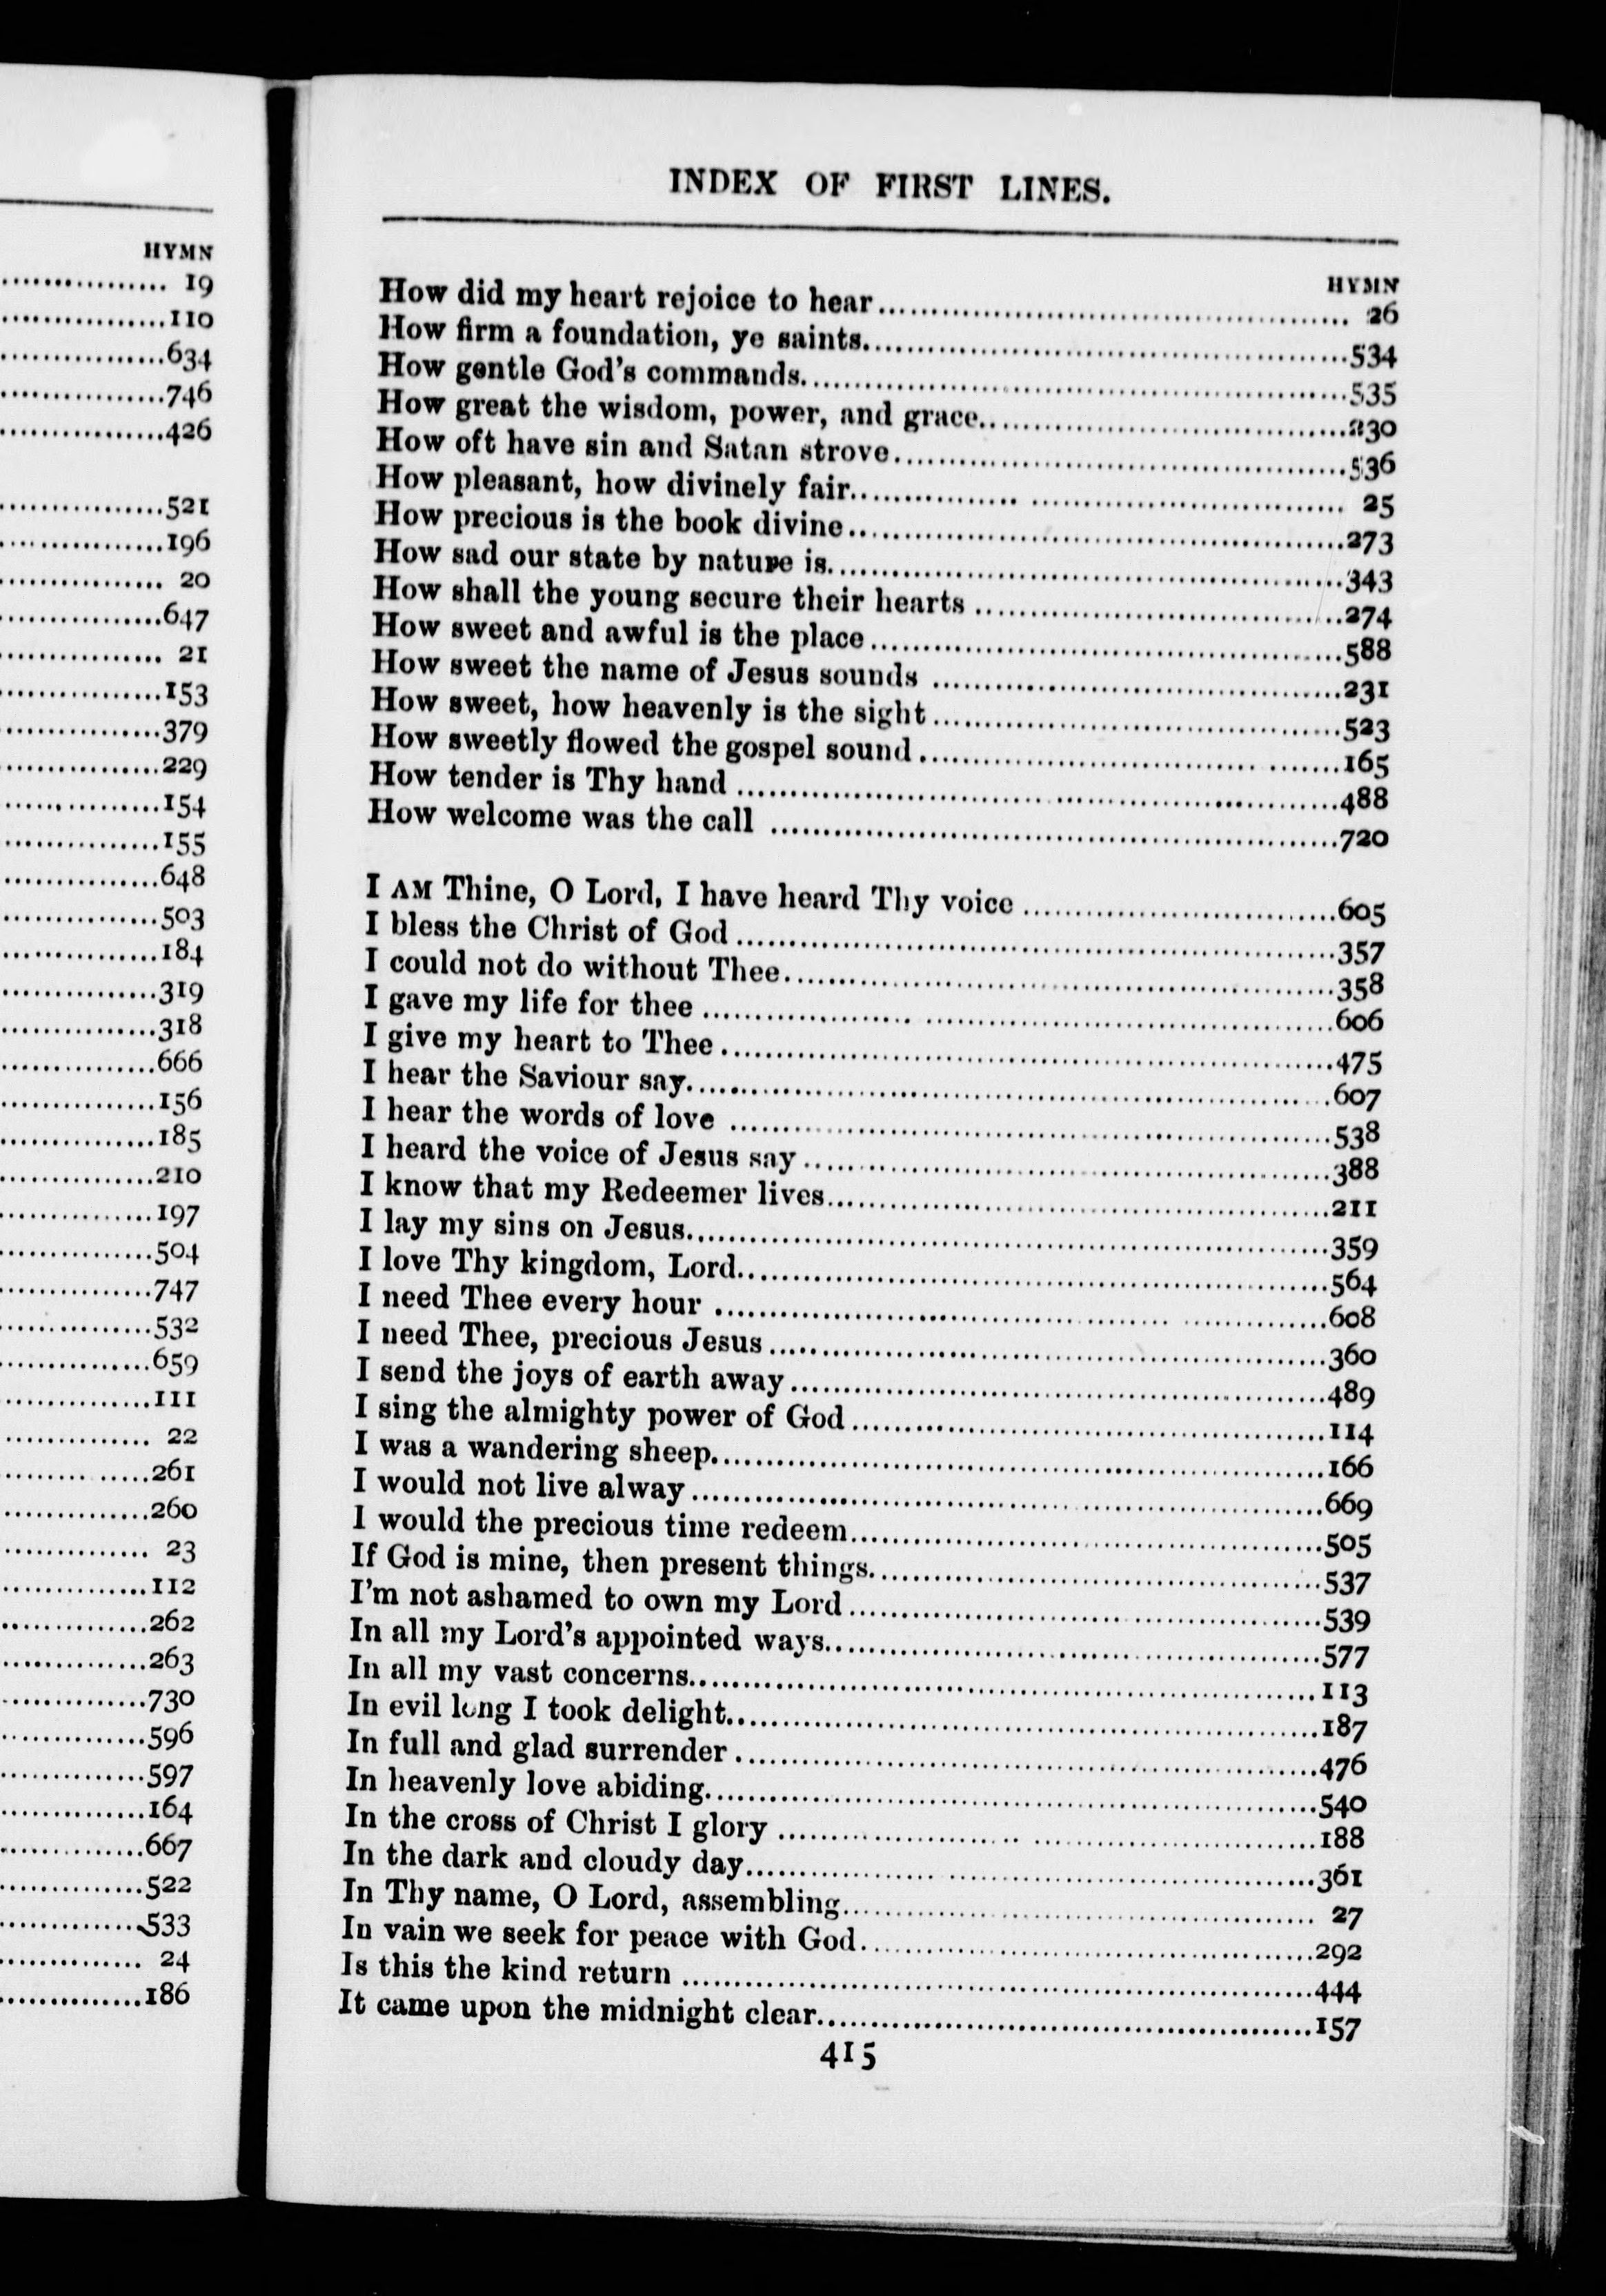 HYMN
................ 19
................110
................634
................746
................426
................521
................196
................ 20
................647
................ 21
................153
................379
................229
................154
................155
................648
................503
................184
................319
................318
................666
................156
................185
................210
................197
................504
................747
................532
................659
................111
................ 22
................261
................260
................ 23
................112
................262
................263
................730
................596
................597
................164
................667
................522
................533
................ 24
................186
INDEX OF FIRST LINES.
HYMN
How did my heart rejoice to hear................ 26
How firm a foundation, ye saints................534
How gentle God's commands................535
How great the wisdom, power, and grace................230
How oft have sin and Satan strove................536
How pleasant, how divinely fair................ 25
How precious is the book divine................273
How sad our state by nature is................343
How shall the young secure their hearts ................274
How sweet and awful is the place................588
How sweet the name of Jesus sounds ................231
How sweet, how heavenly is the sight................523
How sweetly flowed the gospel sound................165
How tender is Thy hand ................488
How welcome was the call ................720
I AM Thine, O Lord, I have heard Thy voice ................605
I bless the Christ of God................357
I could not do without Thee................358
I gave my life for thee ................606
I give my heart to Thee................475
I hear the Saviour say................607
I hear the words of love ................538
I heard the voice of Jesus say................388
I know that my Redeemer lives................211
I lay my sins on Jesus................359
I love Thy kingdom, Lord................564
I need Thee every hour ................608
I need Thee, precious Jesus................360
I send the joys of earth away................489
I sing the almighty power of God................114
I was a wandering sheep................166
I would not live alway................669
I would the precious time redeem................505
If God is mine, then present things................537
I'm not ashamed to own my Lord................539
In all my Lord's appointed ways................577
In all my vast concerns................113
In evil long I took delight................187
In full and glad surrender................476
In heavenly love abiding................540
In the cross of Christ I glory ................188
In the dark and cloudy day................361
In Thy name, O Lord, assembling................ 27
In vain we seek for peace with God................292
Is this the kind return ................444
It came upon the midnight clear................157
415